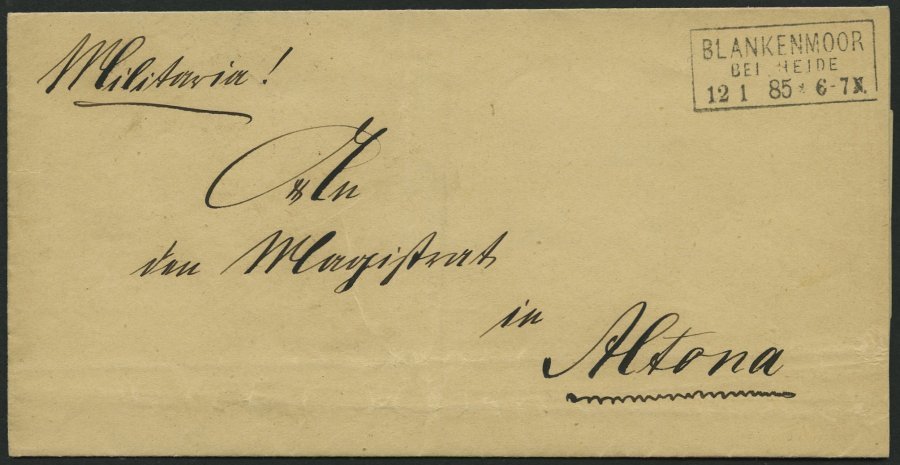 Militaria!
BLANKENMOOR
BEI HEIDE
12 1 85 * 6-7 N.
An
den Magistrat
in
Altona